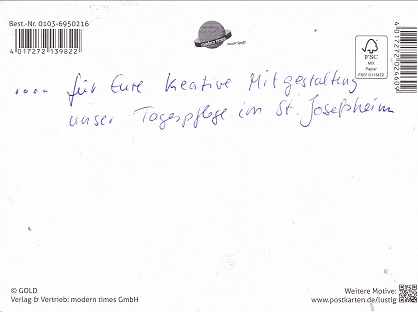 Best.-Nr. 0103-6950216
4 017272 139822
macht Spaß!
FSC
MIX
Papier
.... für Eure kreative Mitgestaltung
unser Tagespflege im St. Josefheim
© GOLD
Verlag & Vertrieb: modern times GmbH
Weitere Motive:
www.postkarten.de/lustig